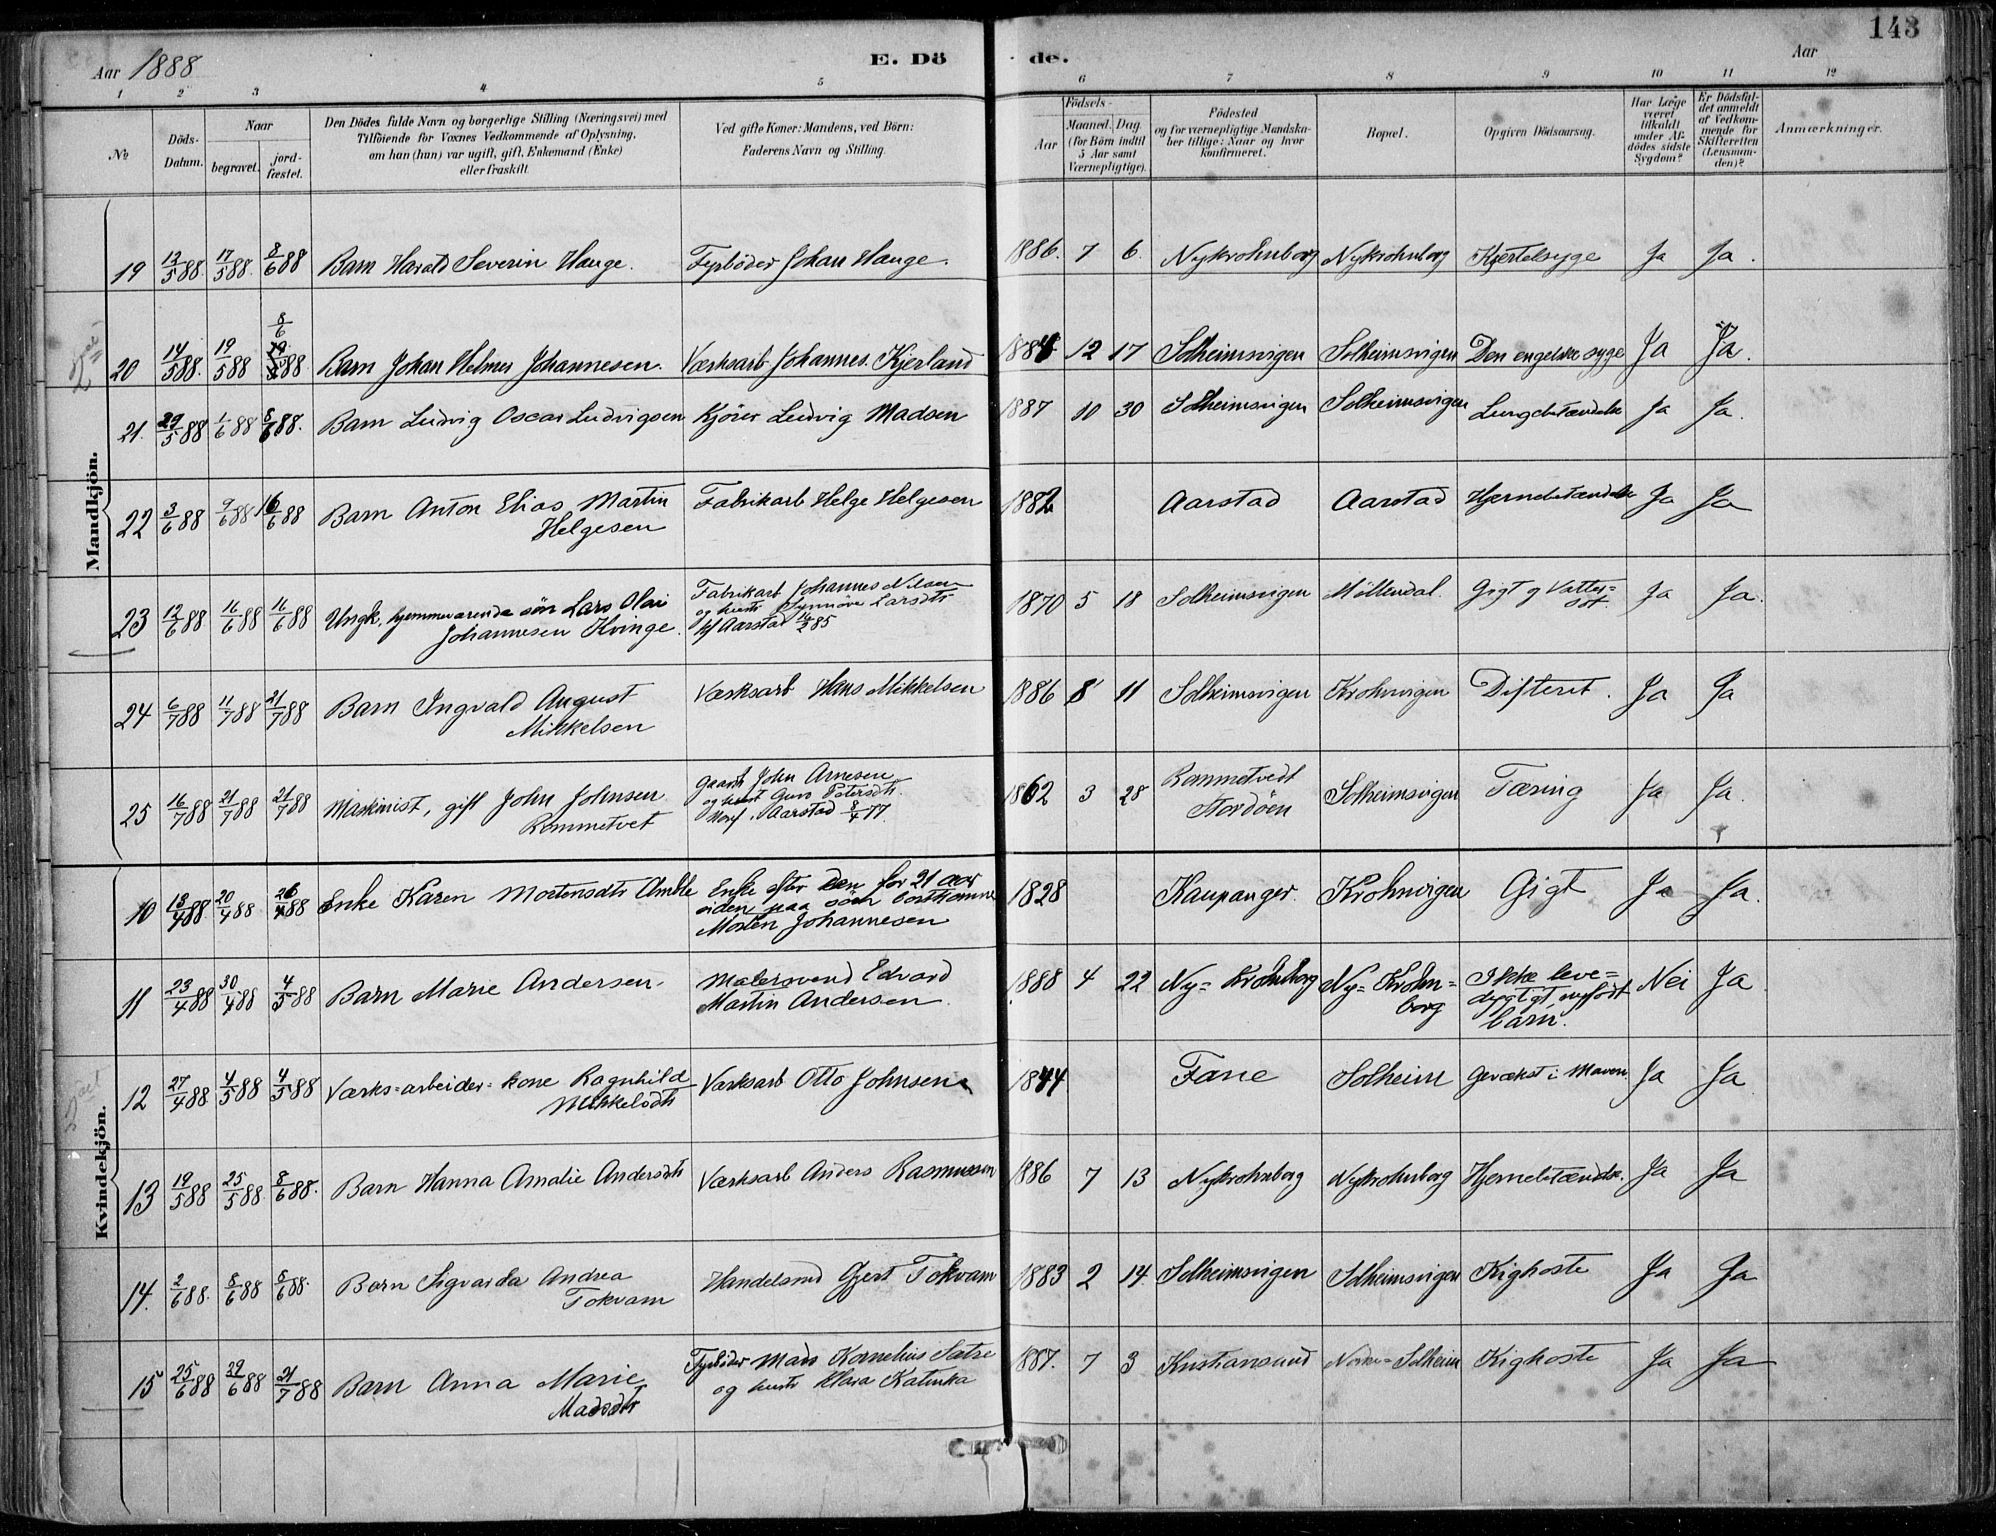 143
Aar 1888
E. Dö
de.
Aar
1 2 3 4 5 6 7 8 9 10 11 12
No
Döds-
Datum.
Naar
begravet.
jord-
fæstet.
Den Dödes fulde Navn og borgerlige Stilling (Næringsvei) med
Tilföiende for Voxnes Vedkommende af Oplysning,
om han (hun) var ugift, gift, Enkemand (Enke)
eller fraskilt.
Ved gifte Koner: Mandens, ved Börn:
Faderens Navn og Stilling.
Födsels-
Aar
Maaned. Dag.
(for Börn indtil
5 Aar samt
Værnepligtige).
Födested
og for værnepligtige Mandska-
ber tillige: Naar og hvor
konfirmeret.
Bopæl.
Opgiven Dödsaarsag.
Har Læge
været
tilkaldt
under Af-
dödes sidste
Sygdom?
Er Dödsfal-
det anmeldt
af Vedkom-
mende for
Skifteretten
(Lensman-
den)?
Anmærkninger.
Mandkjön.
19 12/5 88. 17/5 88. 8/6 88 Barn Harald Severin Hauge. Fyrböder Johan Hauge. 1886. 7 6 Nykrohnborg Nykrohnborg Kjertelsyge Ja Ja.
8/6
20 14/5 88. 19/5 88 88 Barn Johan Helmer Johannesen. Værksarb Johannes. Kjerland 12 17 Solheimsvigen Solheimsvigen Den engelske syge Ja Ja.
21. 29/5 88 1/6 88 8/6 88. Barn Ludvig Oscar Ludvigsen Kjörer Ludvig Madsen 1887 10 30 Solheimsvigen Solheimsvigen Lungebetændelse Ja Ja.
22 3/6 88 9/6 88 16/6 88 Barn Anton Elias Martin
Helgesen Fabrikarb Helge Helgesen 1882 Aarstad Aarstad Hjernebetændelse Ja Ja
23 12/6 88 16/6 88 16/6 88 Ungk. hjemmeværende sön Lars Olai
Johannesen Hvinge. Fabrikarb Johannes Nilsen
og hustr Synnöve Larsdtr
kf Aarstad 85 1870 5 18 Solheimsvigen Möllendal. Gigt og Vatter=
sot Ja Ja.
24 6/7 88 11/7 88 21/7 88 Barn Ingvald August
Mikkelsen Værksarb Hans Mikkelsen 1886 8 11 Solheimsvigen Krohnvigen Difterit. Ja Ja
25 16/7 88 21/7 88 21/7 88 Maskinist, gift John Johnsen
Rommetvet Gaardb John Arnesen
og hustr Guro Petersdtr.
Konf. Aarstad 8/4 77. 1862 3 28 Rommetvedt
Stordöen Solheimsvigen Tæring Ja Ja.
Kvindekjön.
10 13/4 88. 20/4 88 26/4 88 Enke Karen Mortensdtr Amble Enke efter den for 21 aar
siden paa söen bortkomne
Morten Johannesen 1828 Kaupanger. Krohnvigen Gigt Ja Ja.
11 23/4 88 30/4 88 4/5 88 Barn Marie Andersen. Malersvend Edvard
Martin Andersen. 1888 4 22 Ny=Krohnborg Ny=Krohn=
borg Ikke leve=
dygtigt, nyfödt
barn. Nei Ja
12 27/4 88 4/5 88 4/5 88 Værks=arbeider=kone Ragnhild
Mikkelsdtr Værksarb Otto Johnsen. 1844 Fane Solheim Gevækst i Maven. Ja Ja
13 19/5 88 25/5 88 8/6 88. Barn Hanna Amalie Andersdtr Værksarb Anders Rasmussen 1886 7 13 Nykrohnborg Nykrohnborg Hjernebetændelse. Ja Ja
14. 2/6 88. 8/6 88 8/6 88. Barn Sigvarda Andrea
Tokvam Handelsmd Gjert Tokvam 1883 2 14 Solheimsvigen Solheimsvigen Kighoste Ja Ja
15 25/6 88 29/6 88 21/7 88 Barn Anna Marie
Madsdtr Fyrböder Mads Kornelius Sætre
og hustr Klara Katinka 1887. 7 3 Kristiansund Solheim Kighoste Ja Ja